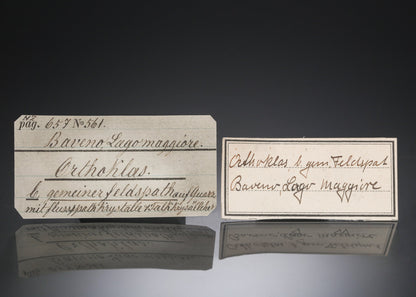 pag. 657 No 561.
Baveno, Lago maggiore.
Orthoklas.
b. gemeiner Feldspath auf Quarz
mit flussspath Krystalle u. Kalk
Orthoklas b. gem. Feldspat
Baveno, Lago Maggiore